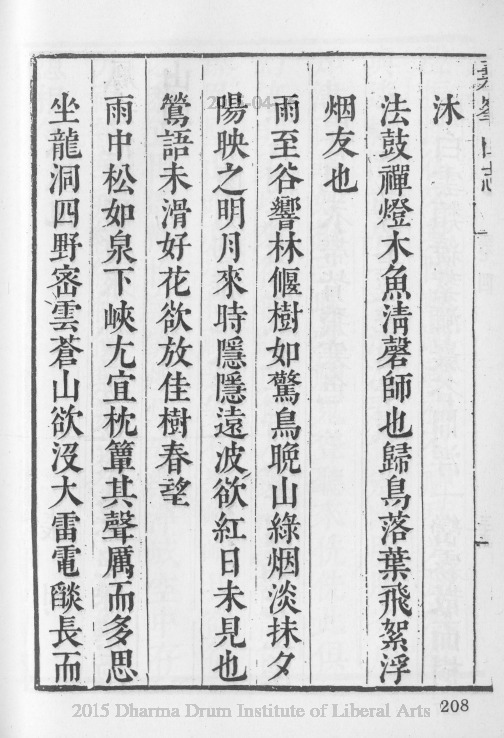 沐
法鼓禪燈木魚清磬師也歸鳥落葉飛絮浮
烟友也
雨至谷響林偃樹如驚鳥晚山綠烟淡抹夕
陽映之明月來時隱隱遠波欲紅日未見也
鶯語未滑好花欲放佳樹春望
雨中松如泉下峽尢宜枕簟其聲厲而多思
坐龍洞四野密雲蒼山欲沒大雷電燄長而
208
2015 Dharma Drum Institute of Liberal Arts